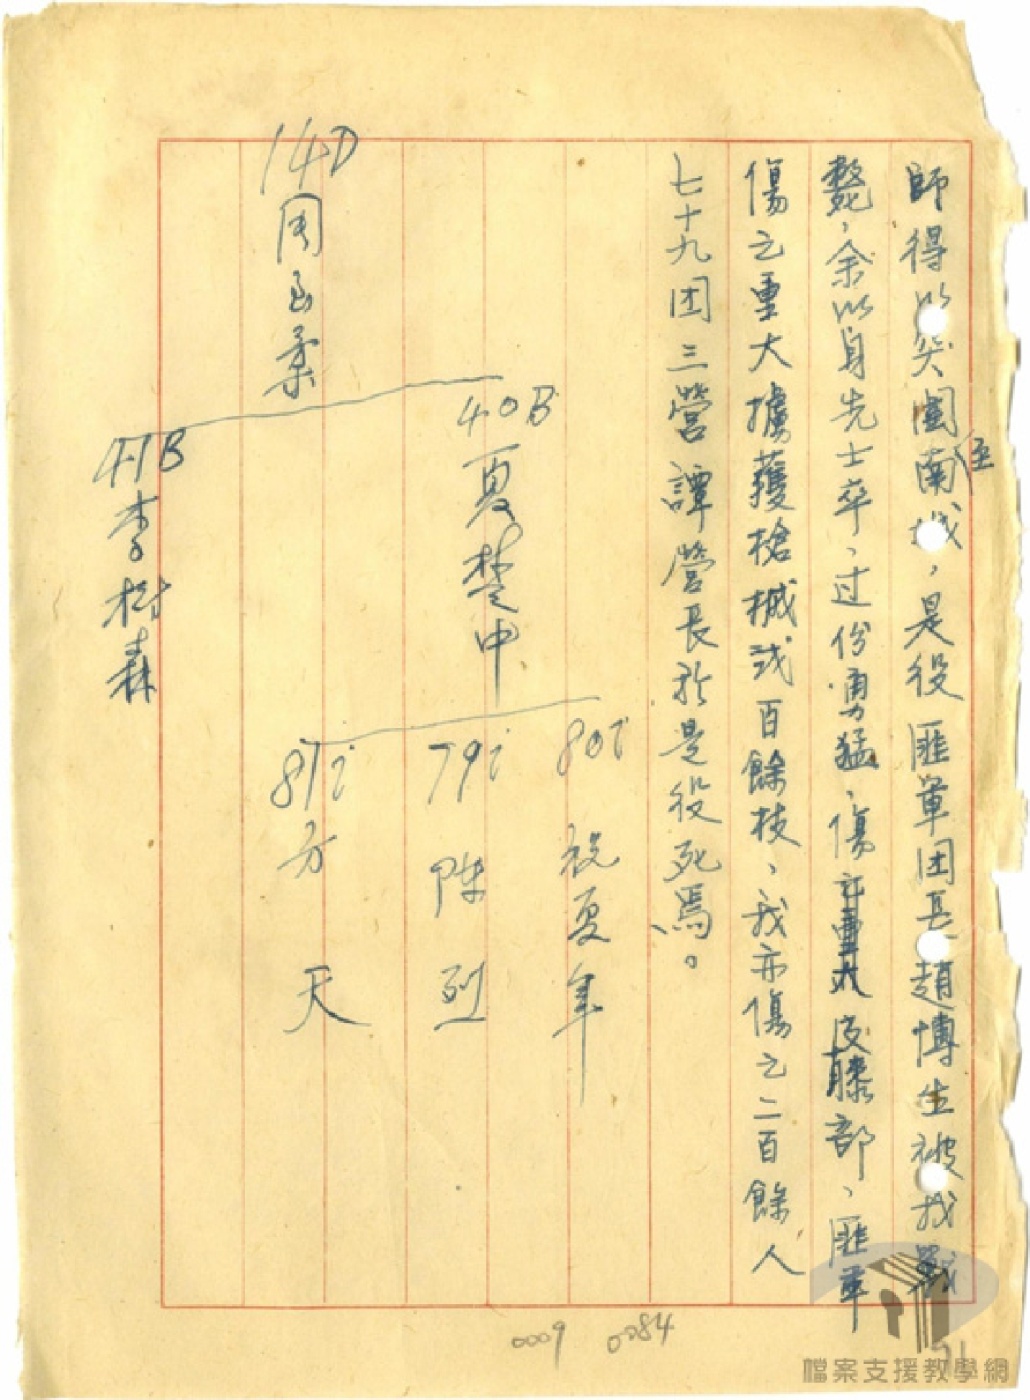 師得以突圍南城，是役匪軍团長趙博生被我擊
斃，余以身先士卒、过份勇猛、傷及藤部、匪軍
傷之重大擄獲槍械弍百餘枝、我亦傷之二百餘人
七十九团三營譚營長於是役死焉。
14D周至柔
40B夏楚中
41B李樹森
80i 祝夏年
79i 陳烈
87i 方天
0009 0084
51
檔案支援教學網